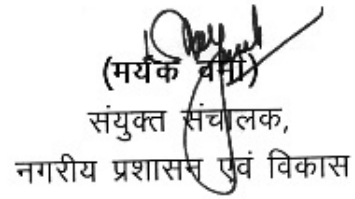 (मयंक वर्मा)
संयुक्त संचालक,
नगरीय प्रशासन एवं विकास